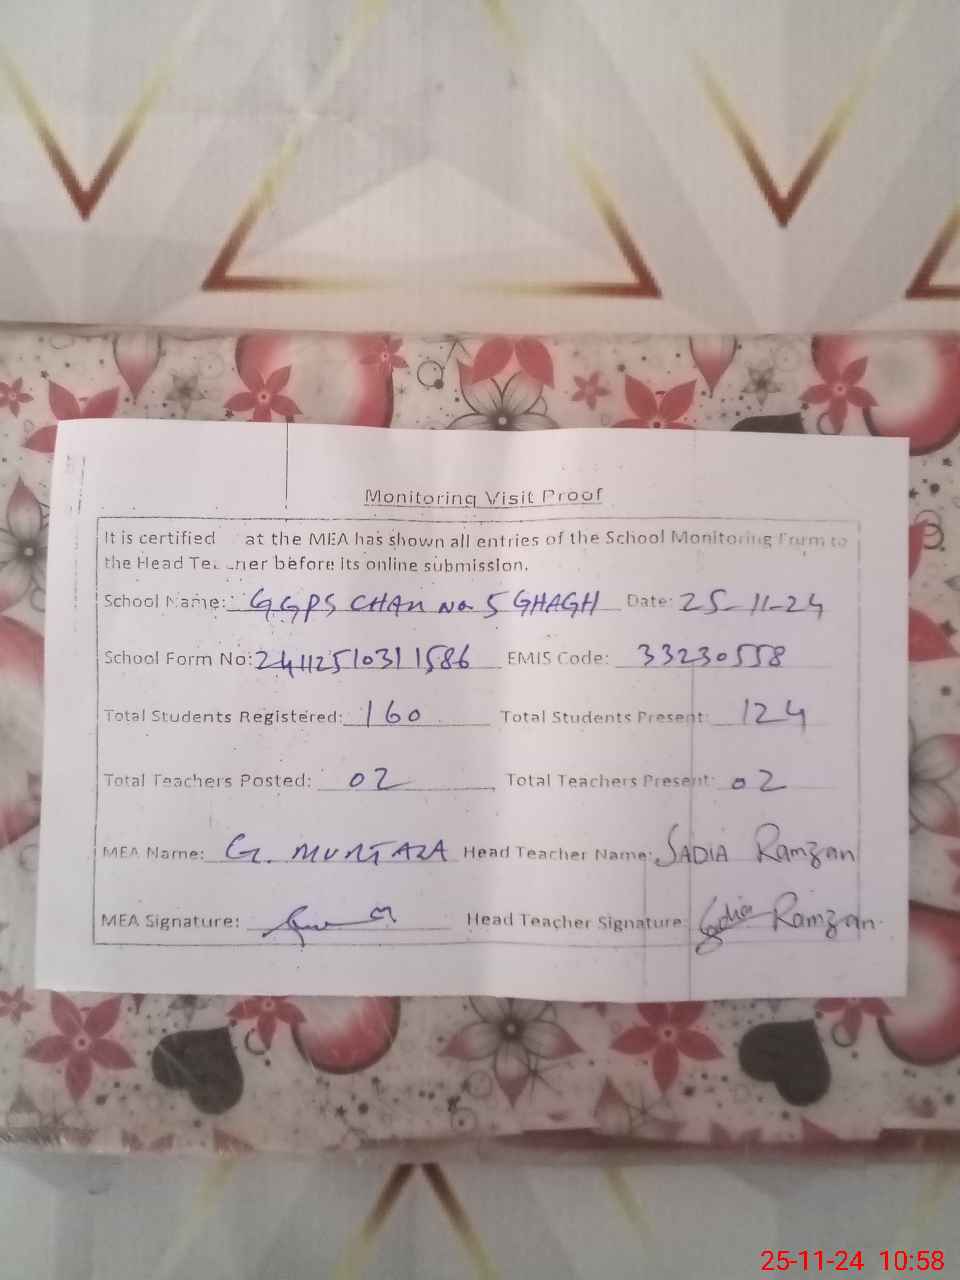 Monitoring Visit Proof
It is certified at the MEA has shown all entries of the School Monitoring Form to
the Head Teacher before its online submission.
School Name: GGPS CHAH No. 5 GHAGH Date: 25-11-24
School Form No: 2411251031 1586 EMIS Code: 33230558
Total Students Registered: 160 Total Students Present: 124
Total Teachers Posted: 02 Total Teachers Present: 02
MEA Name: G. MURTAZA Head Teacher Name: SADIA Ramzan
MEA Signature: Head Teacher Signature: Sadia Ramzan
25-11-24 10:58